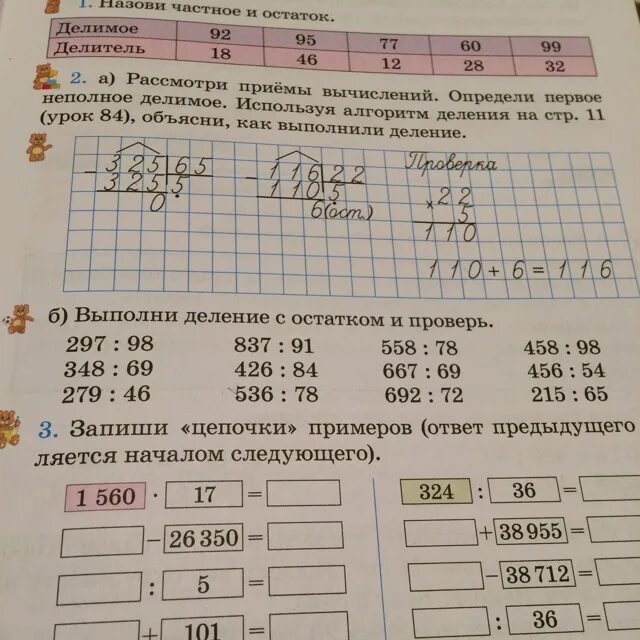 1. Назови частное и остаток.
Делимое 92 95 77 60 99
Делитель 18 46 12 28 32
2. а) Рассмотри приёмы вычислений. Определи первое
неполное делимое. Используя алгоритм деления на стр. 11
(урок 84), объясни, как выполнили деление.
− 325 65
325 5
0
− 116 22
110 5
6 (ост.)
Проверка
× 22
5
110
110 + 6 = 116
б) Выполни деление с остатком и проверь.
297 : 98 837 : 91 558 : 78 458 : 98
348 : 69 426 : 84 667 : 69 456 : 54
279 : 46 536 : 78 692 : 72 215 : 65
3. Запиши «цепочки» примеров (ответ предыдущего
ляется началом следующего).
1 560 · 17 =
− 26 350 =
: 5 =
+ 101 =
324 : 36 =
+ 38 955 =
− 38 712 =
: 36 =